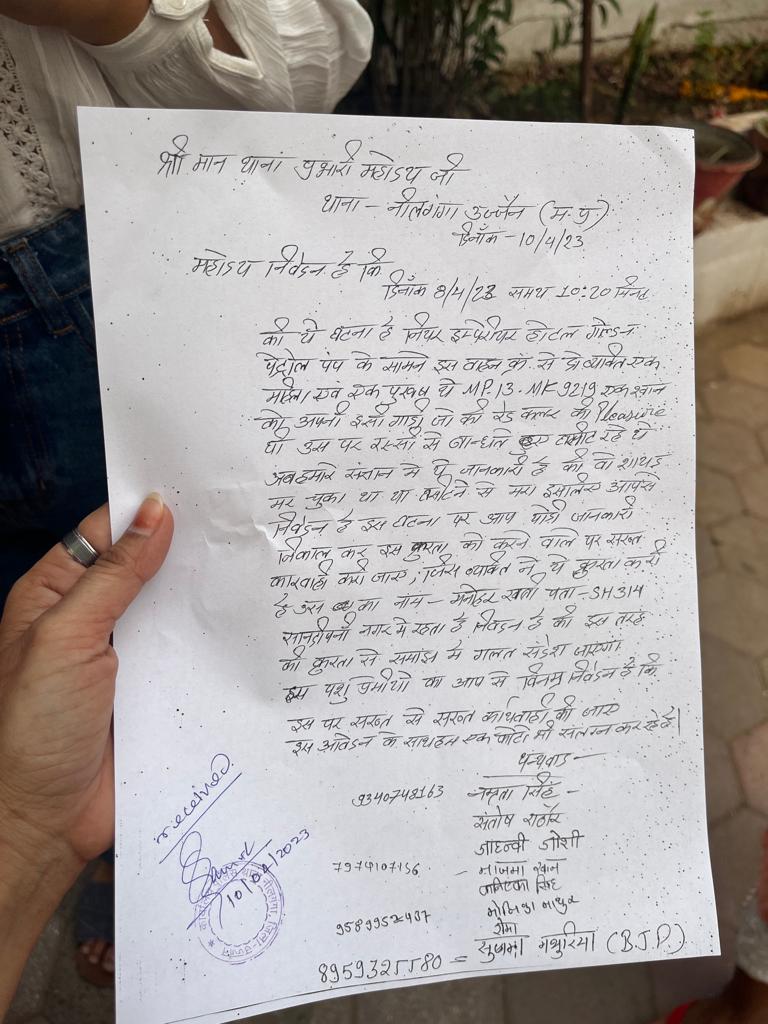 श्री मान थाना प्रभारी महोदय जी
थाना - नीलगंगा उज्जैन (म.प्र.)
दिनाँक - 10/4/23
महोदय निवेदन है कि
दिनाँक 8/4/23 समय 10:20 मिनट
की ये घटना है नियर इम्पेरीयर होटल गोल्डन
पेट्रोल पंप के सामने इस वाहन क्र. से दो व्यक्ति एक
महिला एवं एक पुरुष थे MP.13.MK9219 एक श्वान
को अपनी इसी गाड़ी जो की रेड कलर की Pleasure
थी उस पर रस्सी से बान्धते हुए घसीट रहे थे
अब हमारे संज्ञान मे ये जानकारी है की वो शायद
मर चुका था या घसीटने से मरा इसलिए आपसे
निवेदन है इस घटना पर आप थोडी जानकारी
निकाल कर इस क्रुरता को करने वाले पर सख्त
कारवाही करी जाए, जिस व्यक्ति ने ये क्रुरता करी
है उस का नाम - मनोहर खत्री पता - SH314
सानदीपनी नगर मे रहता है निवेदन है की इस तरह
की क्रुरता से समाज मे गलत संदेश जाएगा
हम पशु प्रेमीयो का आप से विनम्र निवेदन है कि
इस पर सख्त से सख्त कार्यवाही की जाए
इस आवेदन के साथ हम एक फोटो भी सलग्न कर रहे है|
धन्यवाद -
9340748163 नम्रता सिंह -
संतोष राठौर
जाहन्वी जोशी
7974107156 - नाजमा खान
सिंह
माथुर
9589952437 रीमा
8959325580 = सुषमा (B.J.P.)
received
10/04/2023